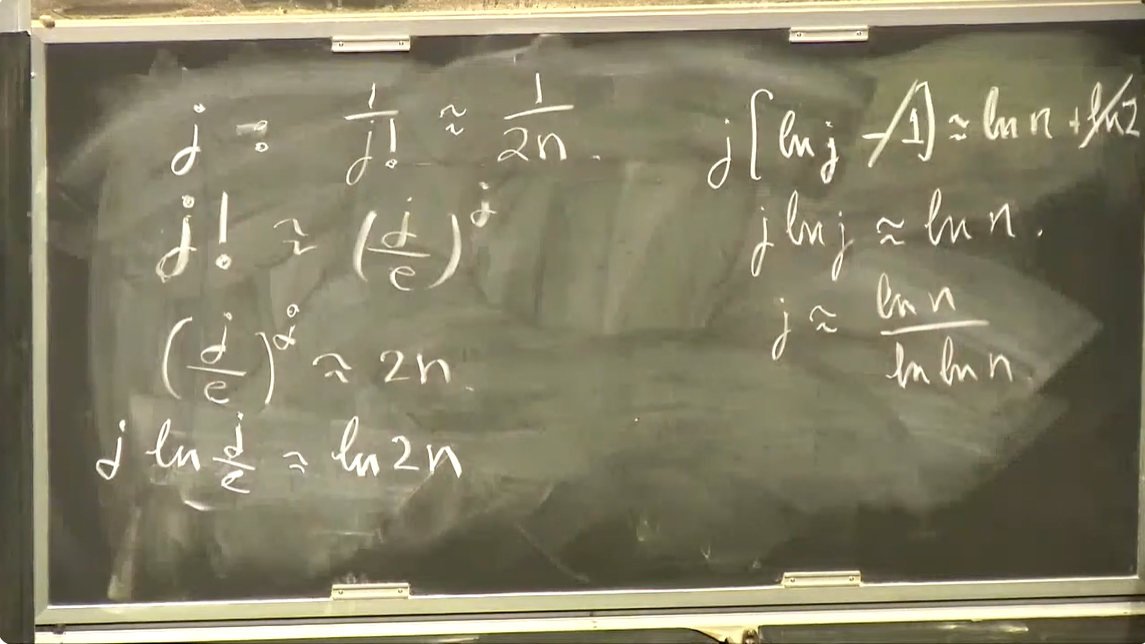 j : 1/j! ≈ 1/2n.
j! ≈ (j/e)^j
(j/e)^j ≈ 2n.
j ln j/e ≈ ln 2n
j[ln j - 1] ≈ ln n + ln 2
j ln j ≈ ln n.
j ≈ ln n / ln ln n